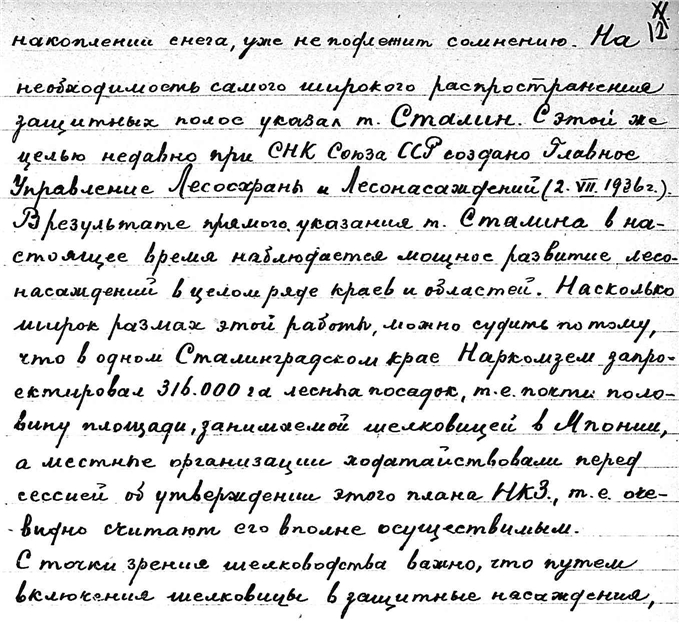 12
накоплений снега, уже не подлежит сомнению. На
необходимость самого широкого распространения
защитных полос указал т. Сталин. С этой же
целью недавно при СНК Союза ССР создано Главное
Управление Лесоохраны и Лесонасаждений (2. VII. 1936 г.).
В результате прямого указания т. Сталина в на-
стоящее время наблюдается мощное развитие лесо-
насаждений в целом ряде краев и областей. Насколько
широк размах этой работы, можно судить по тому,
что в одном Сталинградском крае Наркомзем запро-
ектировал 316.000 га лесных посадок, т.е. почти поло-
вину площади, занимаемой шелковицей в Японии,
а местные организации ходатайствовали перед
сессией об утверждении этого плана НКЗ., т.е. оче-
видно считают его вполне осуществимым.
С точки зрения шелководства важно, что путем
включения шелковицы в защитные насаждения,